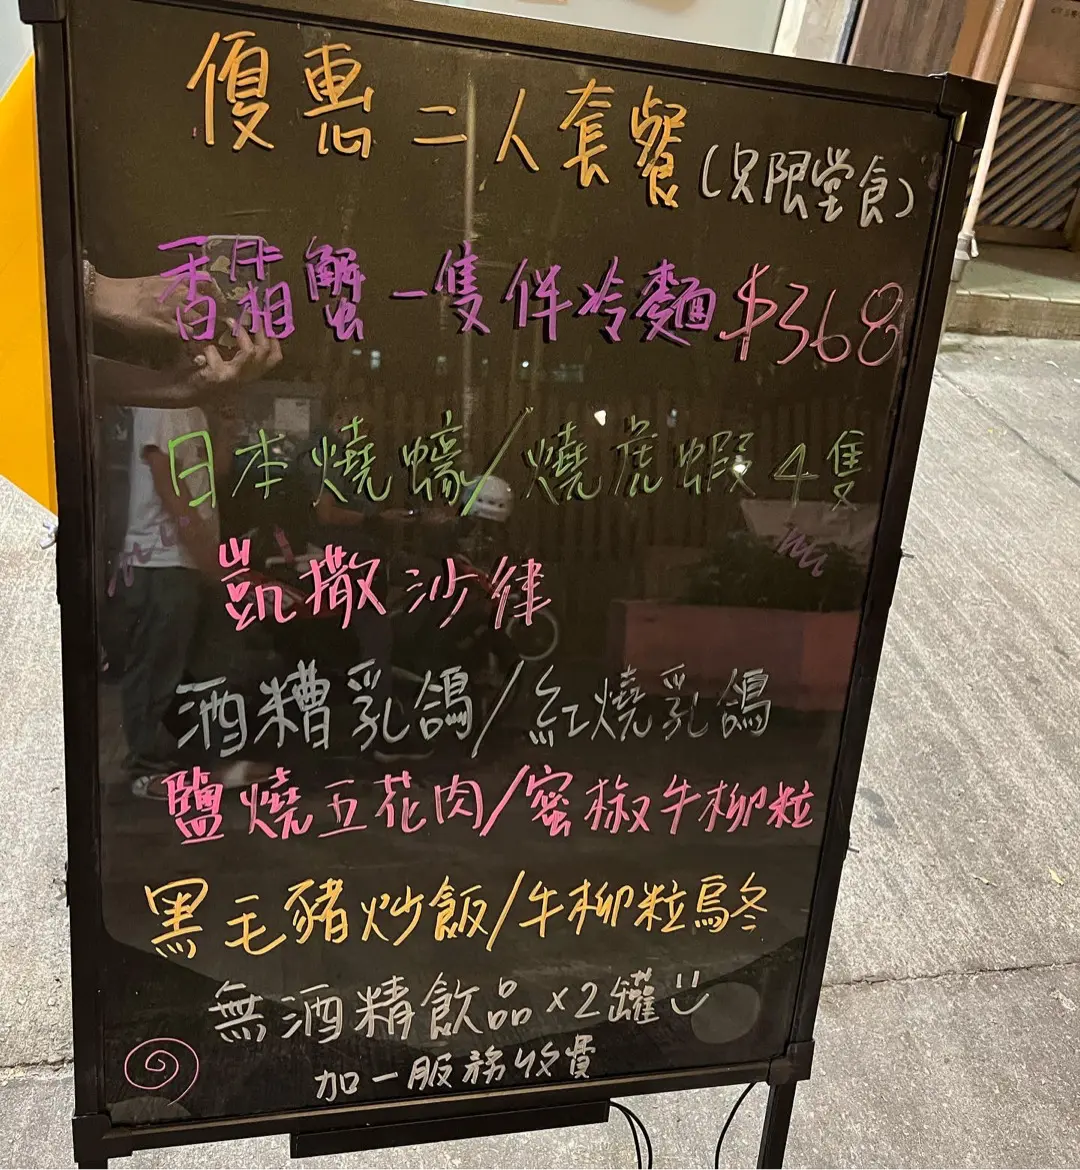 優惠二人套餐(只限堂食)
香箱蟹一隻伴冷麵$368
日本燒蠔/燒虎蝦4隻
凱撒沙律
酒糟乳鴿/紅燒乳鴿
鹽燒五花肉/蜜椒牛柳粒
黑毛豬炒飯/牛柳粒烏冬
無酒精飲品x2罐
加一服務收費